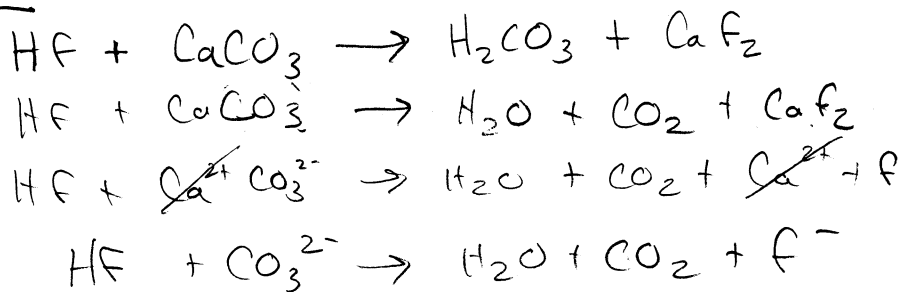 HF + CaCO₃ → H₂CO₃ + CaF₂
HF + CaCO₃ → H₂O + CO₂ + CaF₂
HF + Ca²⁺ CO₃²⁻ → H₂O + CO₂ + Ca²⁺ + F
HF + CO₃²⁻ → H₂O + CO₂ + F⁻